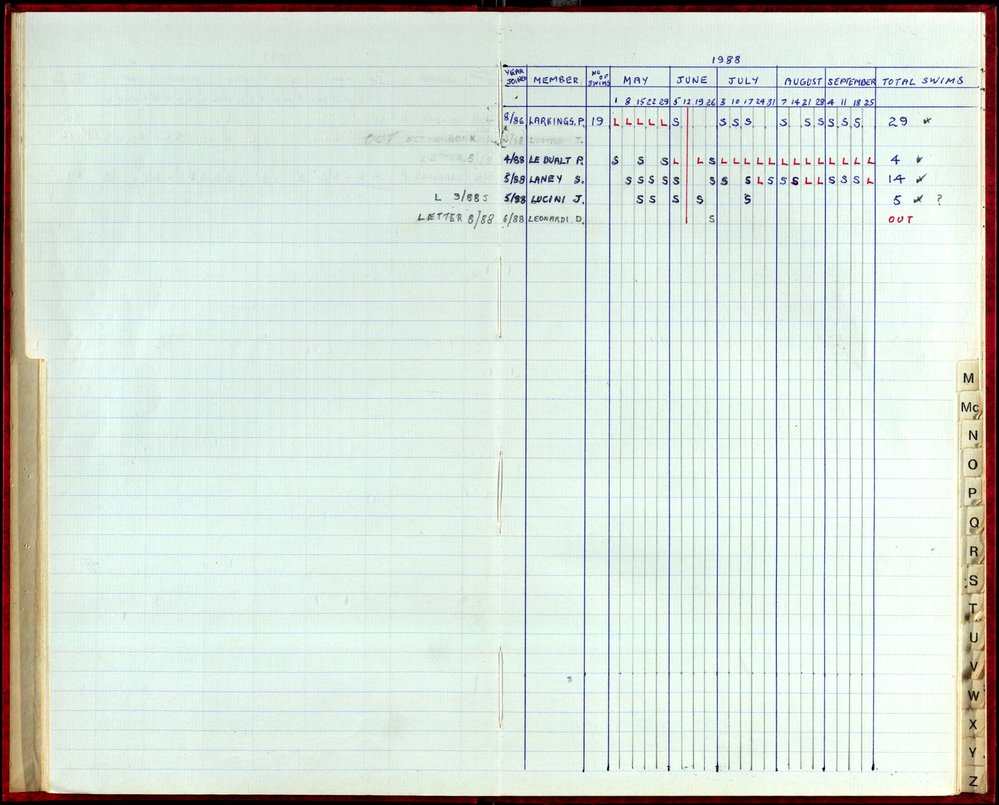 1988
YEAR JOINED MEMBER NO OF SWIMS MAY JUNE JULY AUGUST SEPTEMBER TOTAL SWIMS
1 8 15 22 29 5 12 19 26 3 10 17 24 31 7 14 21 28 4 11 18 25
8/86 LARKINGS, P. 19 L L L L L S S S S S S S S S S 29
OUT NOT ON BOOK
4/88 LE DUALT P. S S S L L S L L L L L L L L L L L L L 4
LETTER
5/88 LANEY S. S S S S S S S S L S S S L L S S S L 14
L 9/88 S 5/88 LUCINI J. S S S S S 5 ?
LETTER 8/88 6/88 LEONARDI. D. S OUT
M
Mc
N
O
P
Q
R
S
T
U
V
W
X
Y
Z